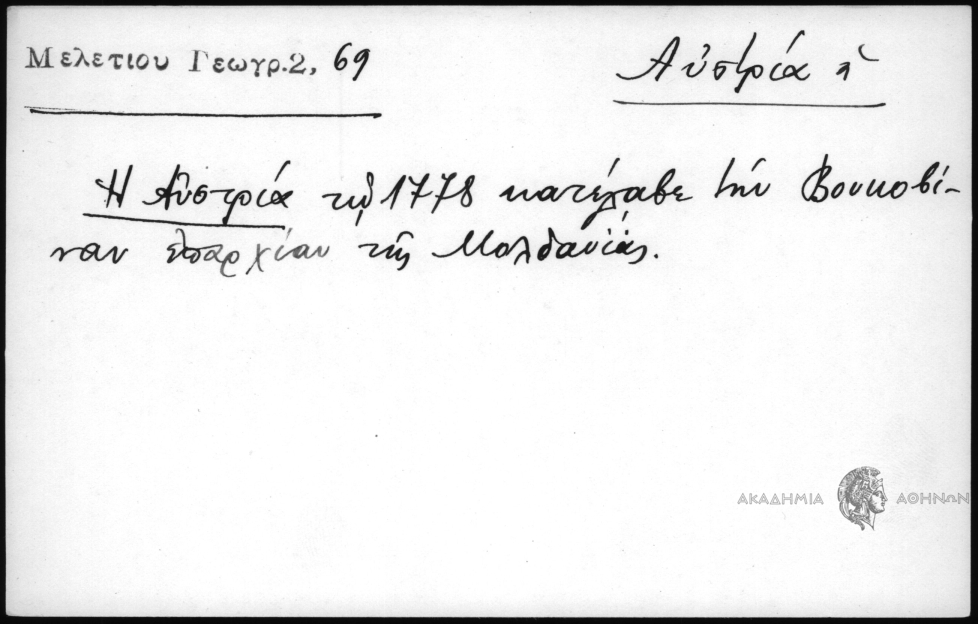 Μελετιου Γεωγρ.2, 69
Αὐστρία ἡ
Ἡ Αὐστρία τῷ 1778 κατέλαβε τήν Βουκοβί-
ναν ἐπαρχίαν τῆς Μολδαυίας.
ΑΚΑΔΗΜΙΑ ΑΘΗΝΩΝ